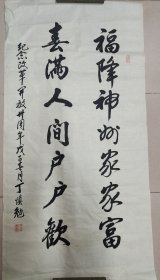 福降神州家家富
春满人间户户歡
纪念改革开放卅周年戊子春月丁